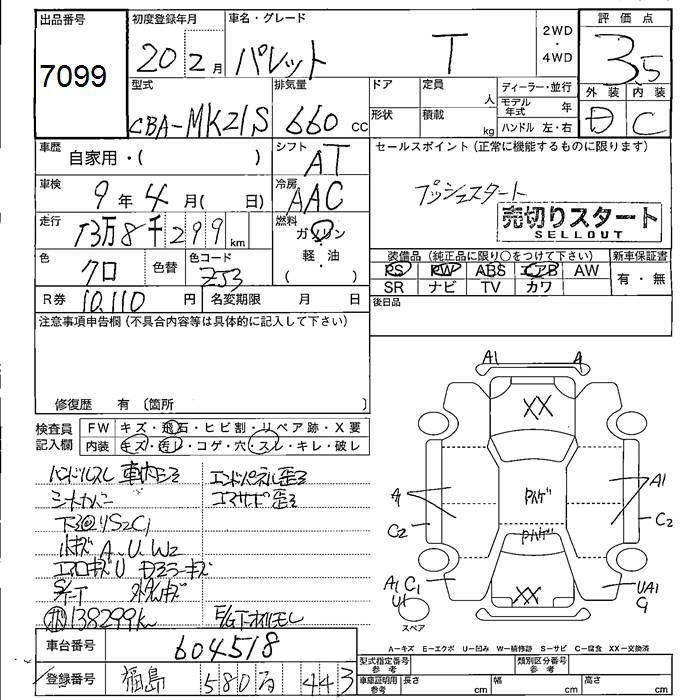 出品番号
7099
初度登録年月
20年2月
車名・グレード
パレット T
2WD・4WD
評価点
3.5
型式
CBA-MK21S
排気量
660cc
ドア
形状
定員 人
積載 kg
ディーラー・並行
モデル年式 年
ハンドル 左・右
外装 内装
D C
車歴 自家用・( )
シフト AT
車検 9年4月( 日)
冷房 AAC
走行 13万8千299km
燃料 ガソリン・軽・油 ( )
色 クロ 色替
色コード ZJ3
R券 10,110円
名変期限 月 日
セールスポイント(正常に機能するものに限ります)
プッシュスタート
売切りスタート
SELLOUT
装備品(純正品に限り○をつけて下さい)
PS PW ABS エアB AW
SR ナビ TV カワ
新車保証書
有・無
後日品
注意事項申告欄(不具合内容等は具体的に記入して下さい)
修復歴 有(箇所 )
検査員記入欄
FW キズ・飛石・ヒビ割・リペア跡・X要
内装 キズ・汚レ・コゲ・穴・スレ・キレ・破レ
ハンドルスレ
エンドパネル歪
シートカバー
小キズ A・U W2
138299km
A1 A
XX
A
A1
C2
C2
A1 C1
U1
UA1
XX
スペア
A-キズ E-エクボ U-凹み W-補修跡 S-サビ C-腐食 XX-交換済
車台番号 604518
登録番号 福島 580 443
型式指定番号 参考
類別区分番号 参考
車庫証明用 参考
長さ cm 幅 cm 高さ cm